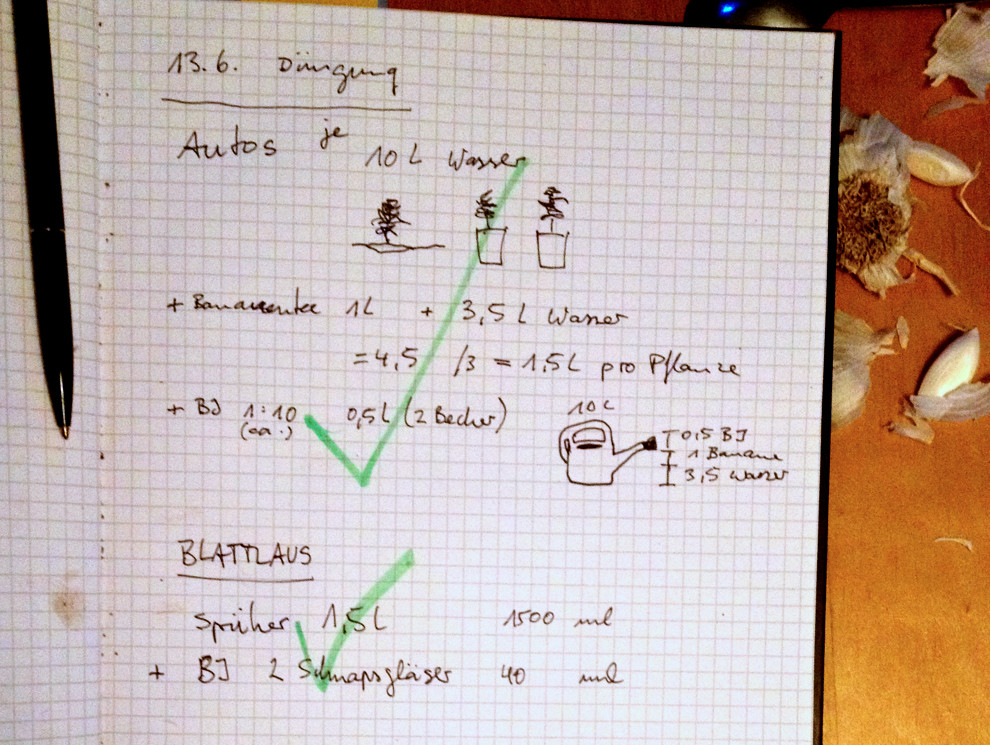 13.6. Düngung
Autos je 10 L Wasser
+ Bananentee 1L + 3,5 L Wasser
= 4,5 /3 = 1,5 L pro Pflanze
+ BJ 1:10 0,5 L (2 Becher)
(ca.)
10 L
0,5 BJ
1 Banane
3,5 Wasser
BLATTLAUS
Sprüher 1,5 L 1500 ml
+ BJ 2 Schnapsgläser 40 ml